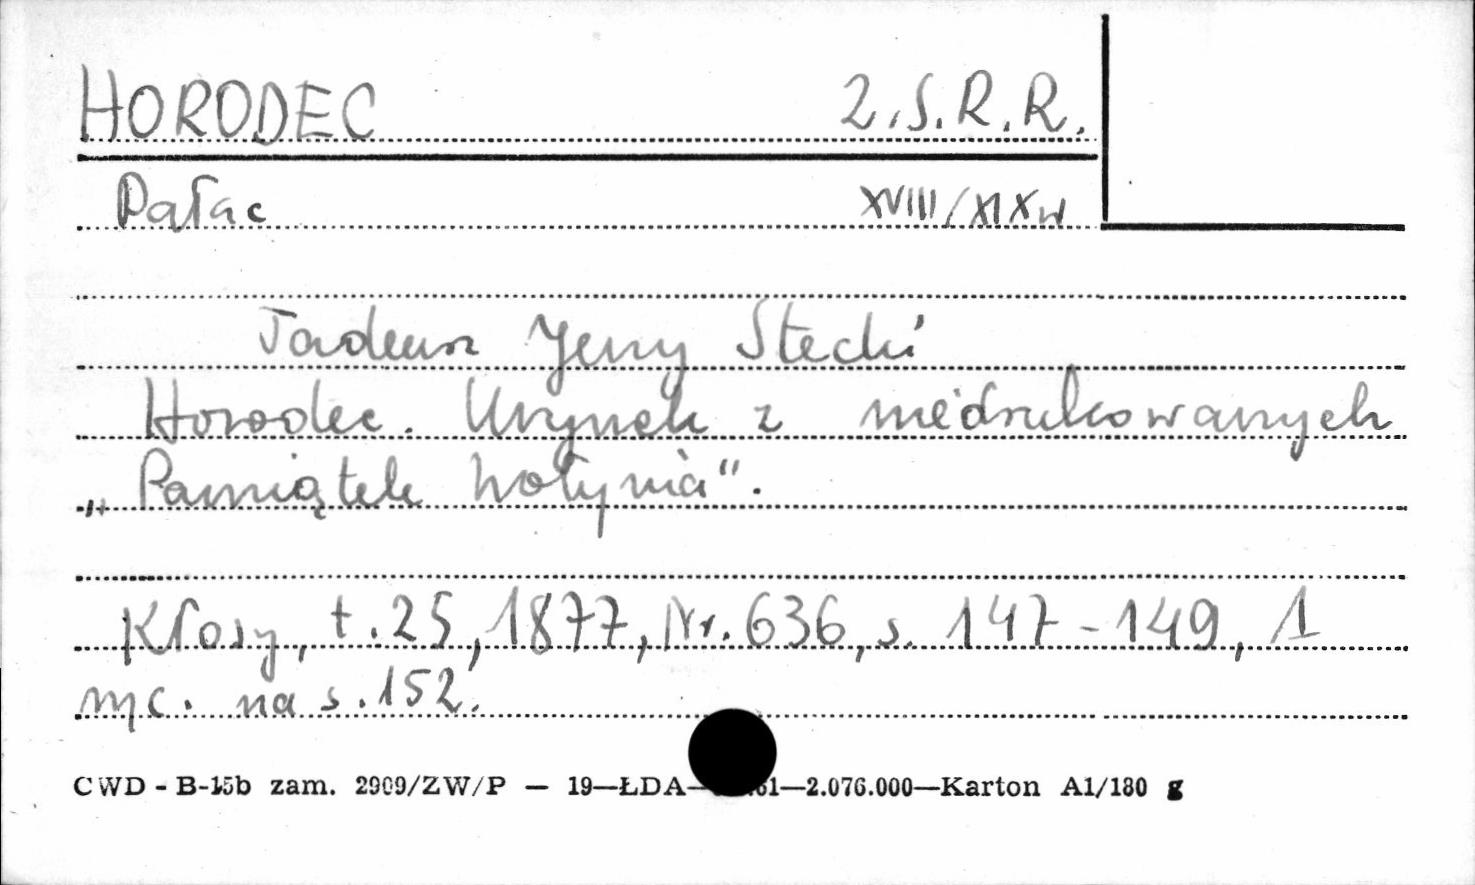 HORODEC Z.S.R.R.
Pałac XVIII/XIX w
Tadeusz Jerzy Stecki
Horodec. Urynek z niedrukowanych
„Pamiątek Wołynia".
Kłosy, t. 25, 1877, Nr. 636, s. 147-149, 1
ryc. na s. 152.
CWD - B-15b zam. 2909/ZW/P — 19—ŁDA— 61—2.076.000—Karton A1/180 g